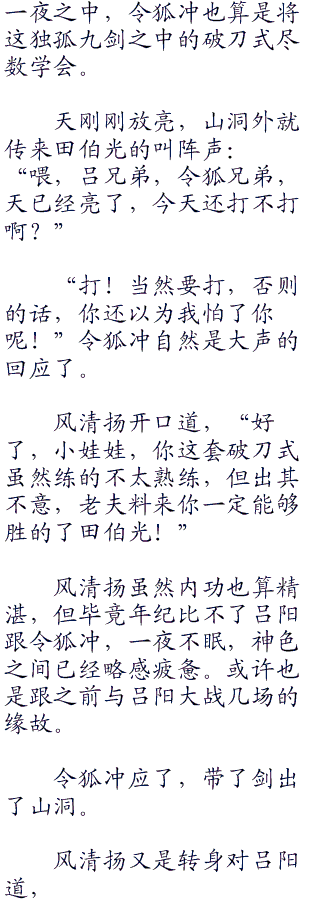 一夜之中，令狐冲也算是将
这独孤九剑之中的破刀式尽
数学会。
天刚刚放亮，山洞外就
传来田伯光的叫阵声：
“喂，吕兄弟，令狐兄弟，
天已经亮了，今天还打不打
啊？”
“打！当然要打，否则
的话，你还以为我怕了你
呢！”令狐冲自然是大声的
回应了。
风清扬开口道，“好
了，小娃娃，你这套破刀式
虽然练的不太熟练，但出其
不意，老夫料来你一定能够
胜的了田伯光！”
风清扬虽然内功也算精
湛，但毕竟年纪比不了吕阳
跟令狐冲，一夜不眠，神色
之间已经略感疲惫。或许也
是跟之前与吕阳大战几场的
缘故。
令狐冲应了，带了剑出
了山洞。
风清扬又是转身对吕阳
道，